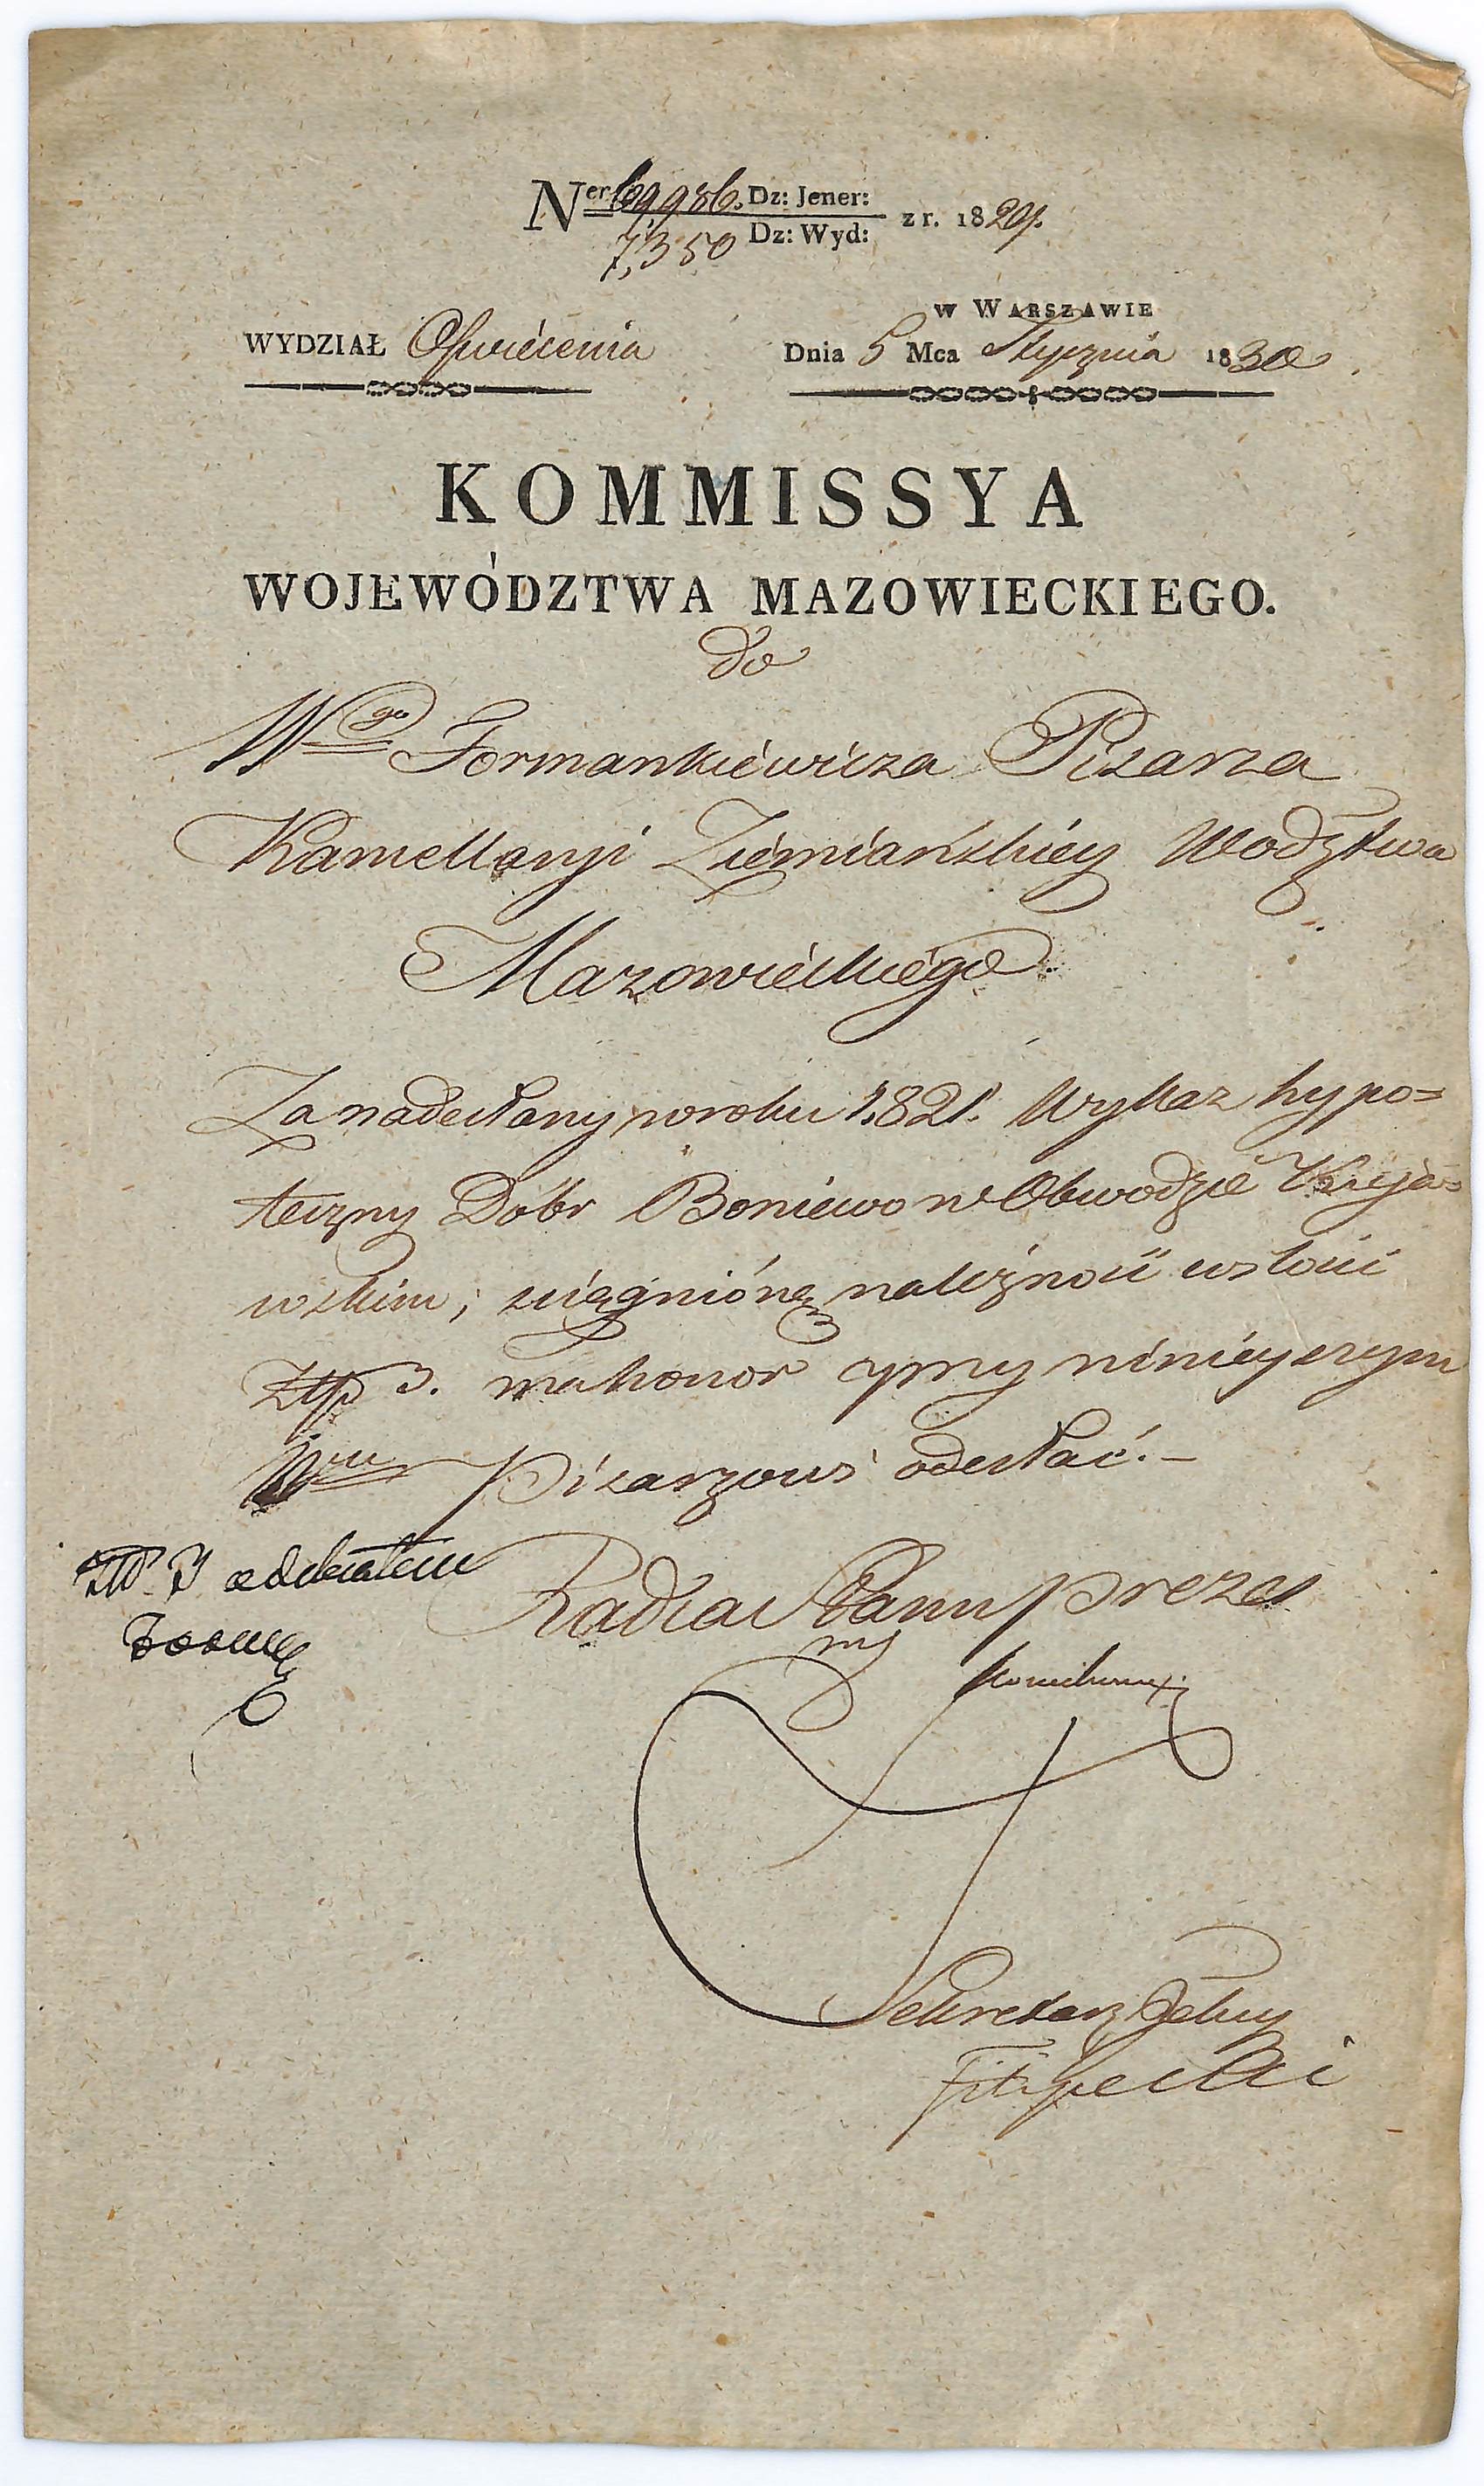 Ner 69,986. Dz: Jener:
7,350 Dz: Wyd: z r. 1829.
w Warszawie
WYDZIAŁ Oświécenia
Dnia 5 Mca Stycznia 1830
KOMMISSYA
WOJEWÓDZTWA MAZOWIECKIEGO.
do
Wgo Formankiéwicza Pisarza
Kancellaryi Ziémiańskiéy Wodztwa
Mazowieckiégo.
Za nadesłany w roku 1821. Wykaz hypo=
teczny Dóbr Boniewo w Obwodzie Kuja=
wskim; ściągnióną należność w ilości
Złp 3. ma honor przy ninieyszym
Wmu Pisarzowi odesłać. –
Złp. 3 odebrałem
Form
Radca Stanu Prezes
Sekretarz Jelny
Filipecki